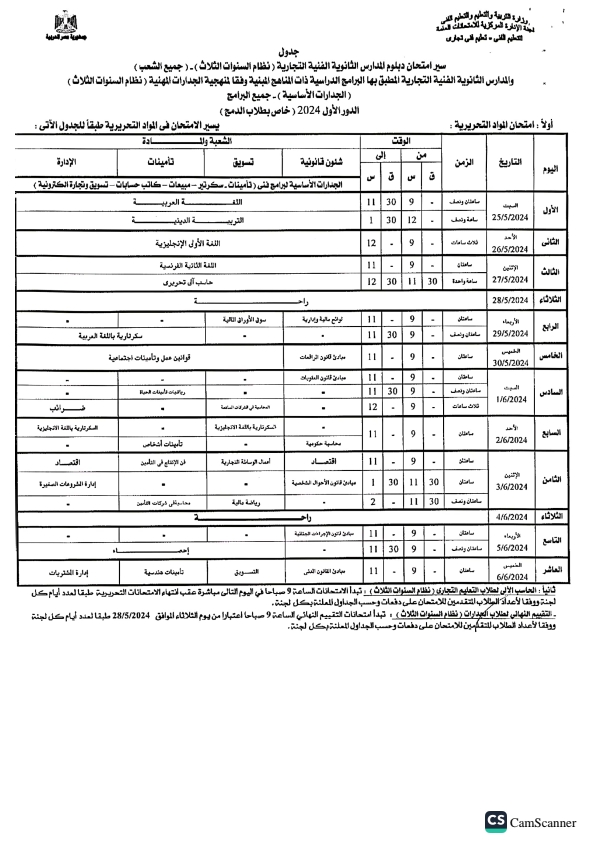 وزارة التربية والتعليم والتعليم الفنى
لجنة الإدارة المركزية للامتحانات العامة
التعليم الفنى - تعليم فنى تجارى
جمهورية مصر العربية
جدول
سير امتحان دبلوم المدارس الثانوية الفنية التجارية ( نظام السنوات الثلاث ) - ( جميع الشعب )
والمدارس الثانوية الفنية التجارية المطبق بها البرامج الدراسية ذات المناهج المبنية وفقا لمنهجية الجدارات المهنية ( نظام السنوات الثلاث )
( الجدارات الأساسية ) - جميع البرامج
الدور الأول 2024 ( خاص بطلاب الدمج )
أولاً : امتحان المواد التحريرية : يسير الامتحان فى المواد التحريرية طبقاً للجدول الآتى :
اليوم التاريخ الزمن الوقت الشعبة والمـــادة
من إلى شئون قانونية تسويق تأمينات الإدارة
ق س ق س الجدارات الأساسية لبرامج فنى ( تأمينات - سكرتير - مبيعات - كاتب حسابات - تسويق وتجارة الكترونية )
الأول السبت 25/5/2024 ساعتان ونصف - 9 30 11 اللغـــة العربيـــة
ساعة ونصف - 12 30 1 التربيـــة الدينيـــة
الثانى الأحد 26/5/2024 ثلاث ساعات - 9 - 12 اللغة الأولى الإنجليزية
الثالث الإثنين 27/5/2024 ساعتان - 9 - 11 اللغة الثانية الفرنسية
ساعة واحدة 30 11 30 12 حاسب آلى تحريرى
الثلاثاء 28/5/2024 راحـــــة
الرابع الأربعاء 29/5/2024 ساعتان - 9 - 11 لوائح مالية وإدارية سوق الأوراق المالية - -
ساعتان ونصف - 9 30 11 - - سكرتارية باللغة العربية
الخامس الخميس 30/5/2024 ساعتان - 9 - 11 مبادئ قانون المرافعات قوانين عمل وتأمينات اجتماعية
السادس السبت 1/6/2024 ساعتان - 9 - 11 مبادئ قانون العقوبات - - -
ساعتان ونصف - 9 30 11 - - رياضيات تأمينات الحياة -
ثلاث ساعات - 9 - 12 - المحاسبة فى الشركات المساهمة - ضـرائب
السابع الأحد 2/6/2024 ساعتان - 9 - 11 - السكرتارية باللغة الانجليزية - السكرتارية باللغة الانجليزية
محاسبة حكومية - تأمينات أشخاص -
الثامن الإثنين 3/6/2024 ساعتان - 9 - 11 اقتصـاد أعمال الوساطة التجارية فن الإنتاج فى التأمين اقتصـاد
ساعتان 30 11 30 1 مبادئ قانون الأحوال الشخصية - - إدارة المشروعات الصغيرة
ساعتان ونصف 30 11 - 2 - رياضة مالية محاسبة فى شركات التأمين -
الثلاثاء 4/6/2024 راحـــــة
التاسع الأربعاء 5/6/2024 ساعتان - 9 - 11 مبادئ قانون الإجراءات الجنائية - - -
ساعتان ونصف - 9 30 11 - إحصـــاء
العاشر الخميس 6/6/2024 ساعتان - 9 - 11 مبادئ القانون المدنى التسويق تأمينات هندسية إدارة المشتريات
ثانياً : الحاسب الآلى لطلاب التعليم التجارى ( نظام السنوات الثلاث ) : تبدأ الامتحانات الساعة 9 صباحا فى اليوم التالى مباشرة عقب انتهاء الامتحانات التحريرية طبقا لعدد أيام كل
لجنة ووفقا لأعداد الطلاب المتقدمين للامتحان على دفعات وحسب الجداول المعلنة بكل لجنة.
- التقييم النهائى لطلاب الجدارات ( نظام السنوات الثلاث ) : تبدأ امتحانات التقييم النهائى الساعة 9 صباحا اعتبارا من يوم الثلاثاء الموافق 28/5/2024 طبقا لعدد أيام كل لجنة
ووفقا لأعداد الطلاب المتقدمين للامتحان على دفعات وحسب الجداول المعلنة بكل لجنة.
CS CamScanner